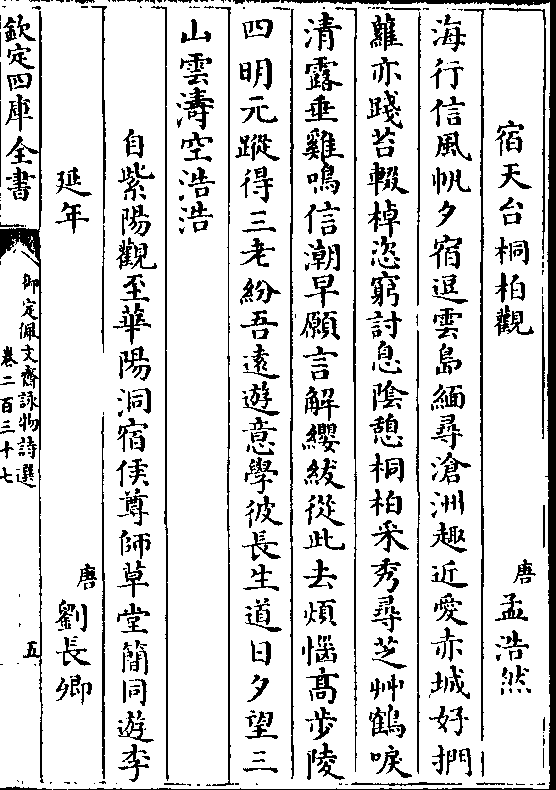 宿天台桐柏觀
唐孟浩然
海行信風帆夕宿逗雲島緬尋滄洲趣近愛赤城好捫
蘿亦踐苔輟棹恣窮討息陰憩桐柏采秀尋芝艸鶴唳
清露垂雞鳴信潮早願言解纓紱從此去煩惱高步陵
四明元蹤得三老紛吾遠遊意學彼長生道日夕望三
山雲濤空浩浩
自紫陽觀至華陽洞宿侯尊師草堂簡同遊李
延年
唐劉長卿
欽定四庫全書
御定佩文齋詠物詩選
卷二百三十七
五